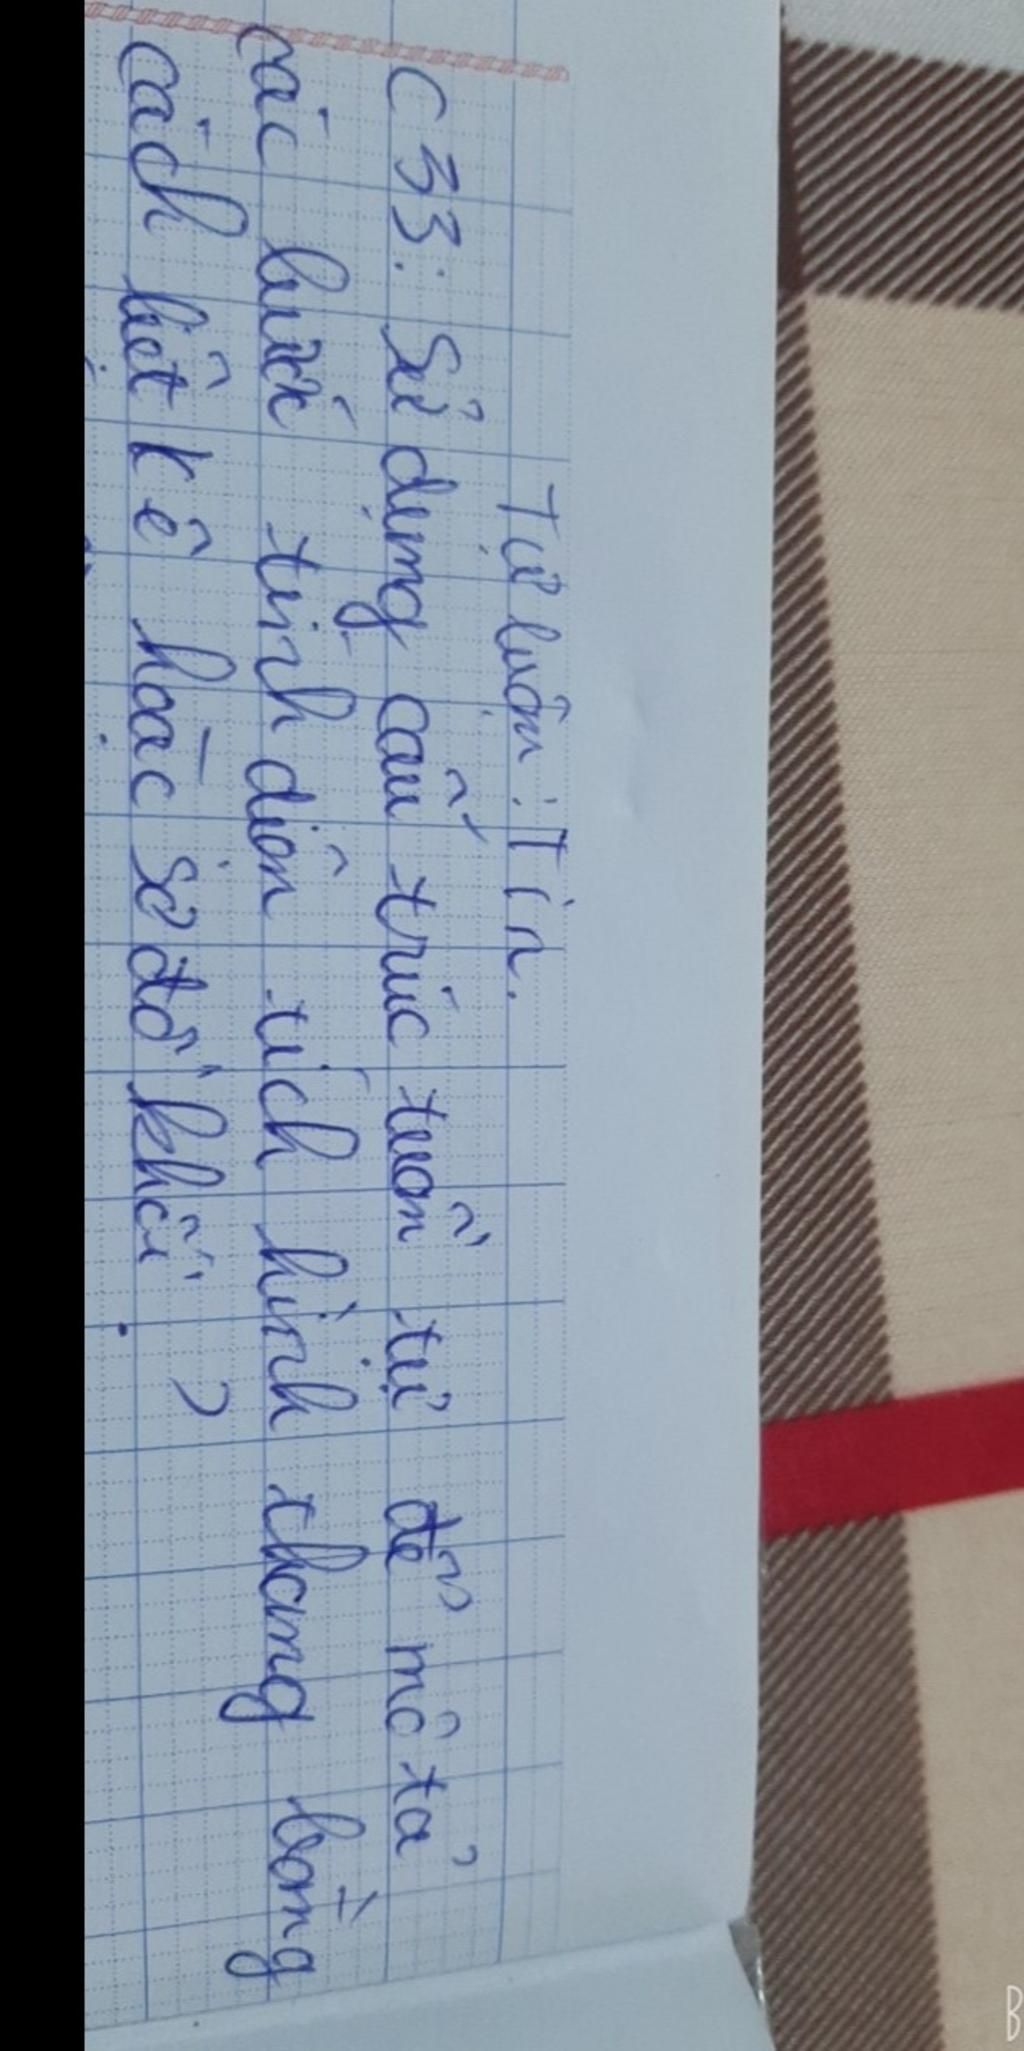 Tự luận: Tin.
C33: Sử dụng cấu trúc tuần tự để mô tả
các bước tính diện tích hình thang bằng
cách liệt kê hoặc sơ đồ khối?
B